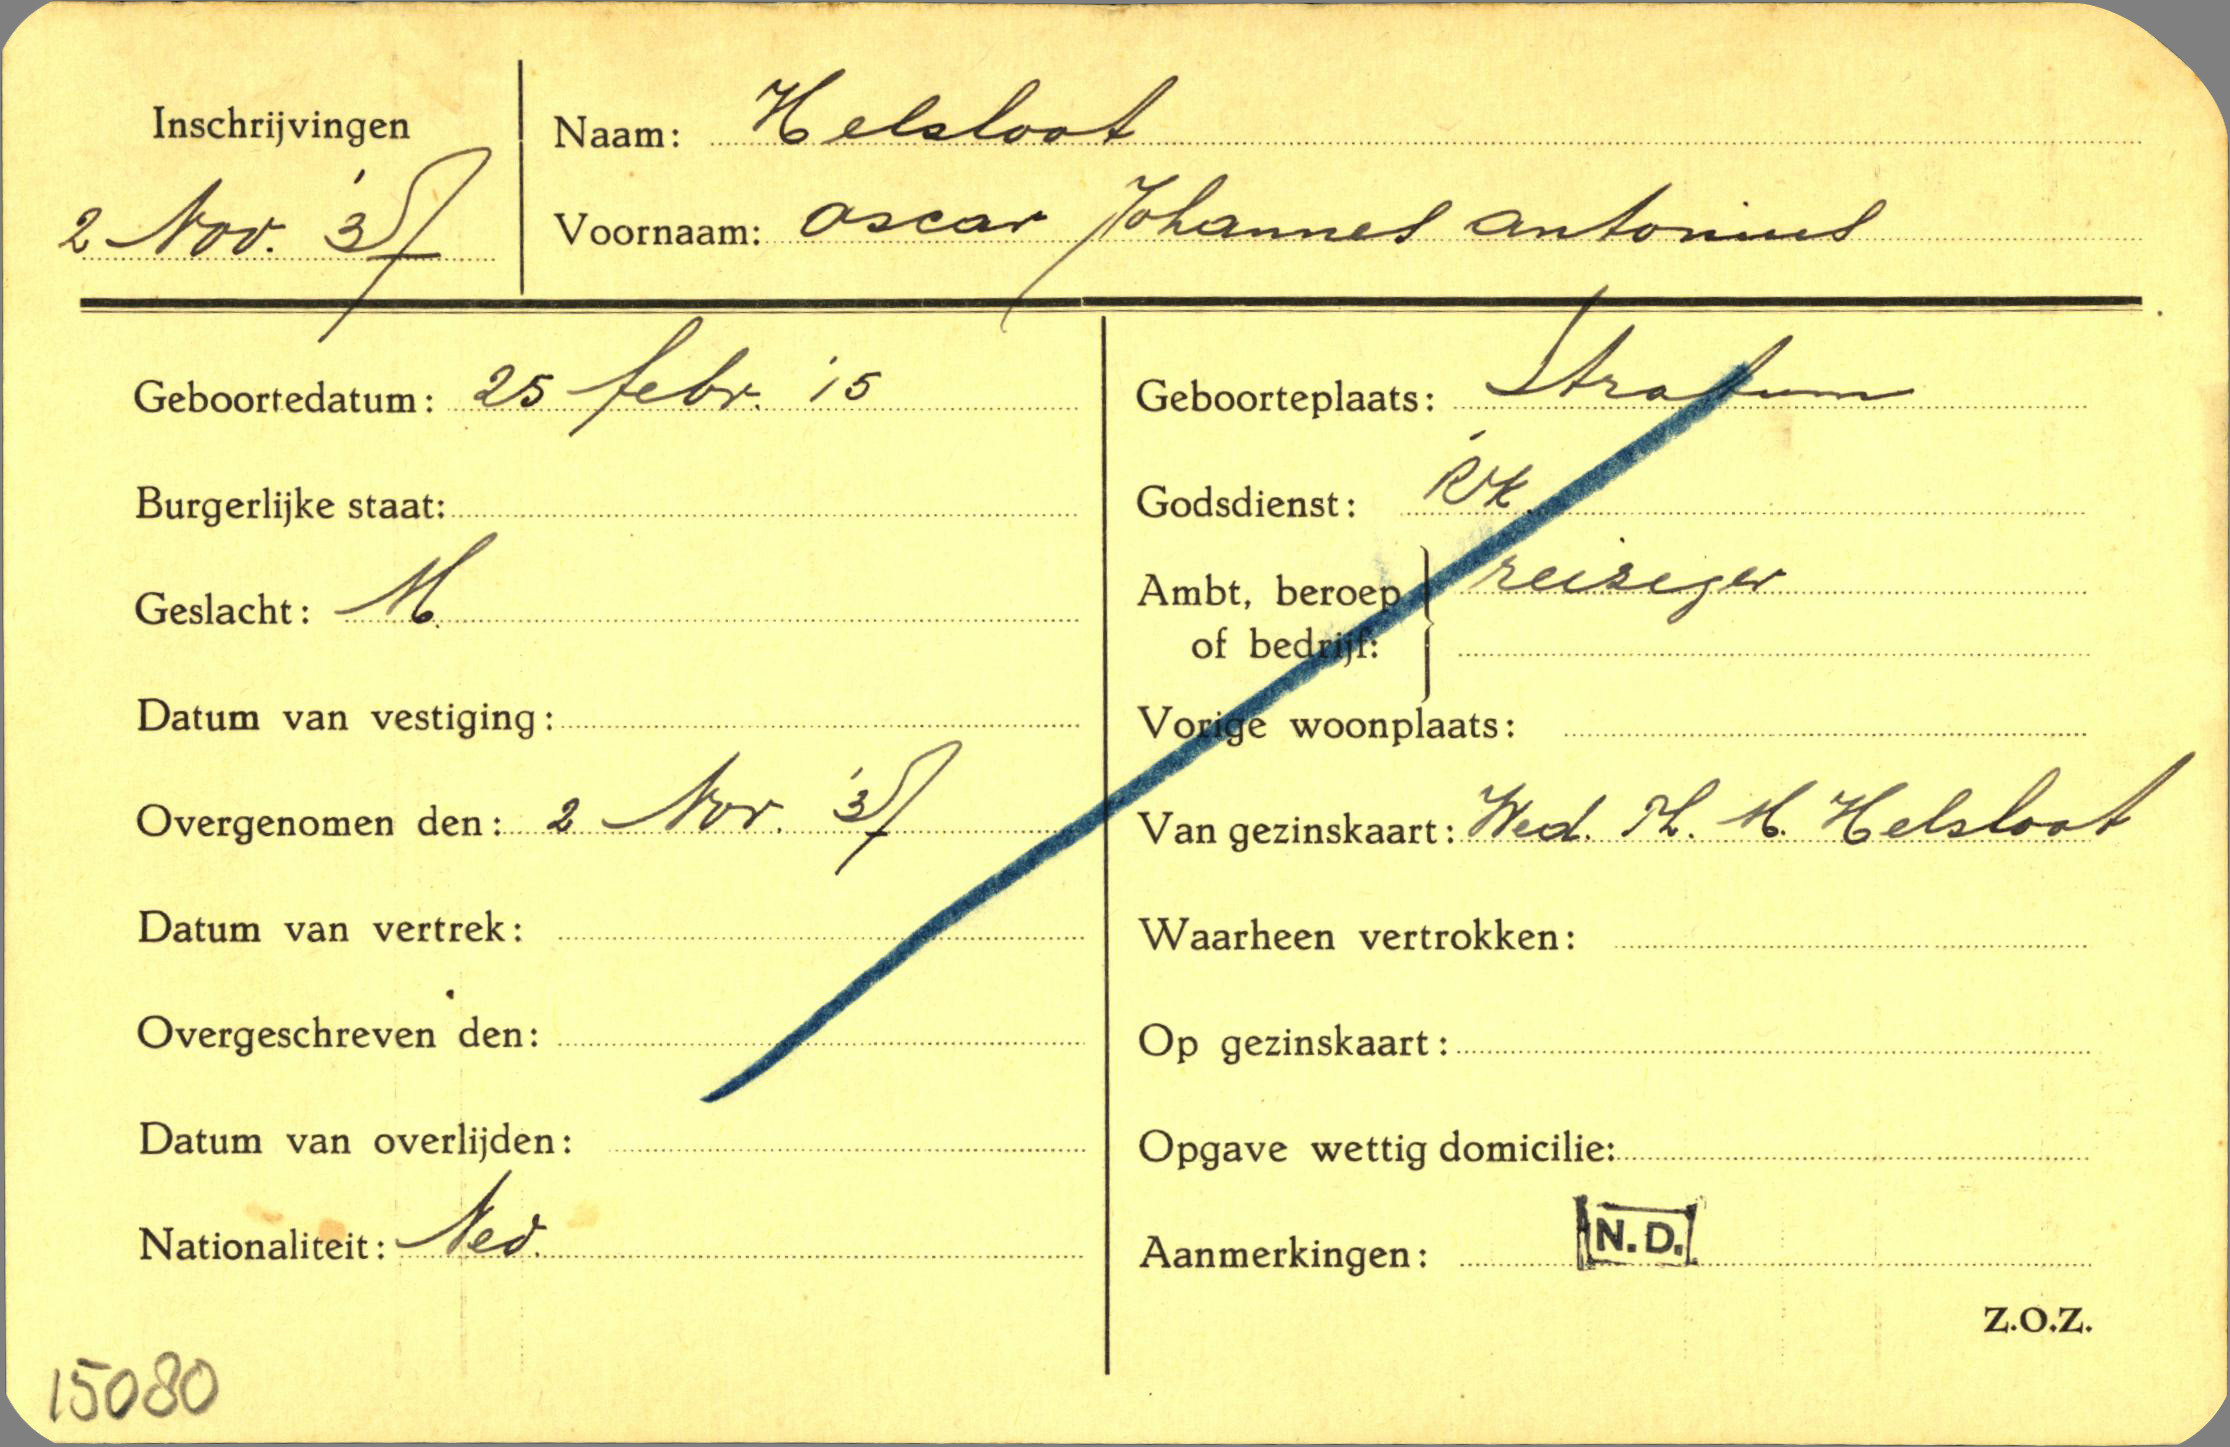 Inschrijvingen
2 Nov. '37
Naam: Helsloot
Voornaam: Oscar Johannes Antonius
Geboortedatum: 25 febr. '15
Burgerlijke staat:
Geslacht: M.
Datum van vestiging:
Overgenomen den: 2 Nov. '37
Datum van vertrek:
Overgeschreven den:
Datum van overlijden:
Nationaliteit: Ned.
15080
Geboorteplaats: Stratum
Godsdienst: RK.
Ambt, beroep reiziger
of bedrijf:
Vorige woonplaats:
Van gezinskaart: Wed. Th. M. Helsloot
Waarheen vertrokken:
Op gezinskaart:
Opgave wettig domicilie:
Aanmerkingen: N.D.
Z.O.Z.